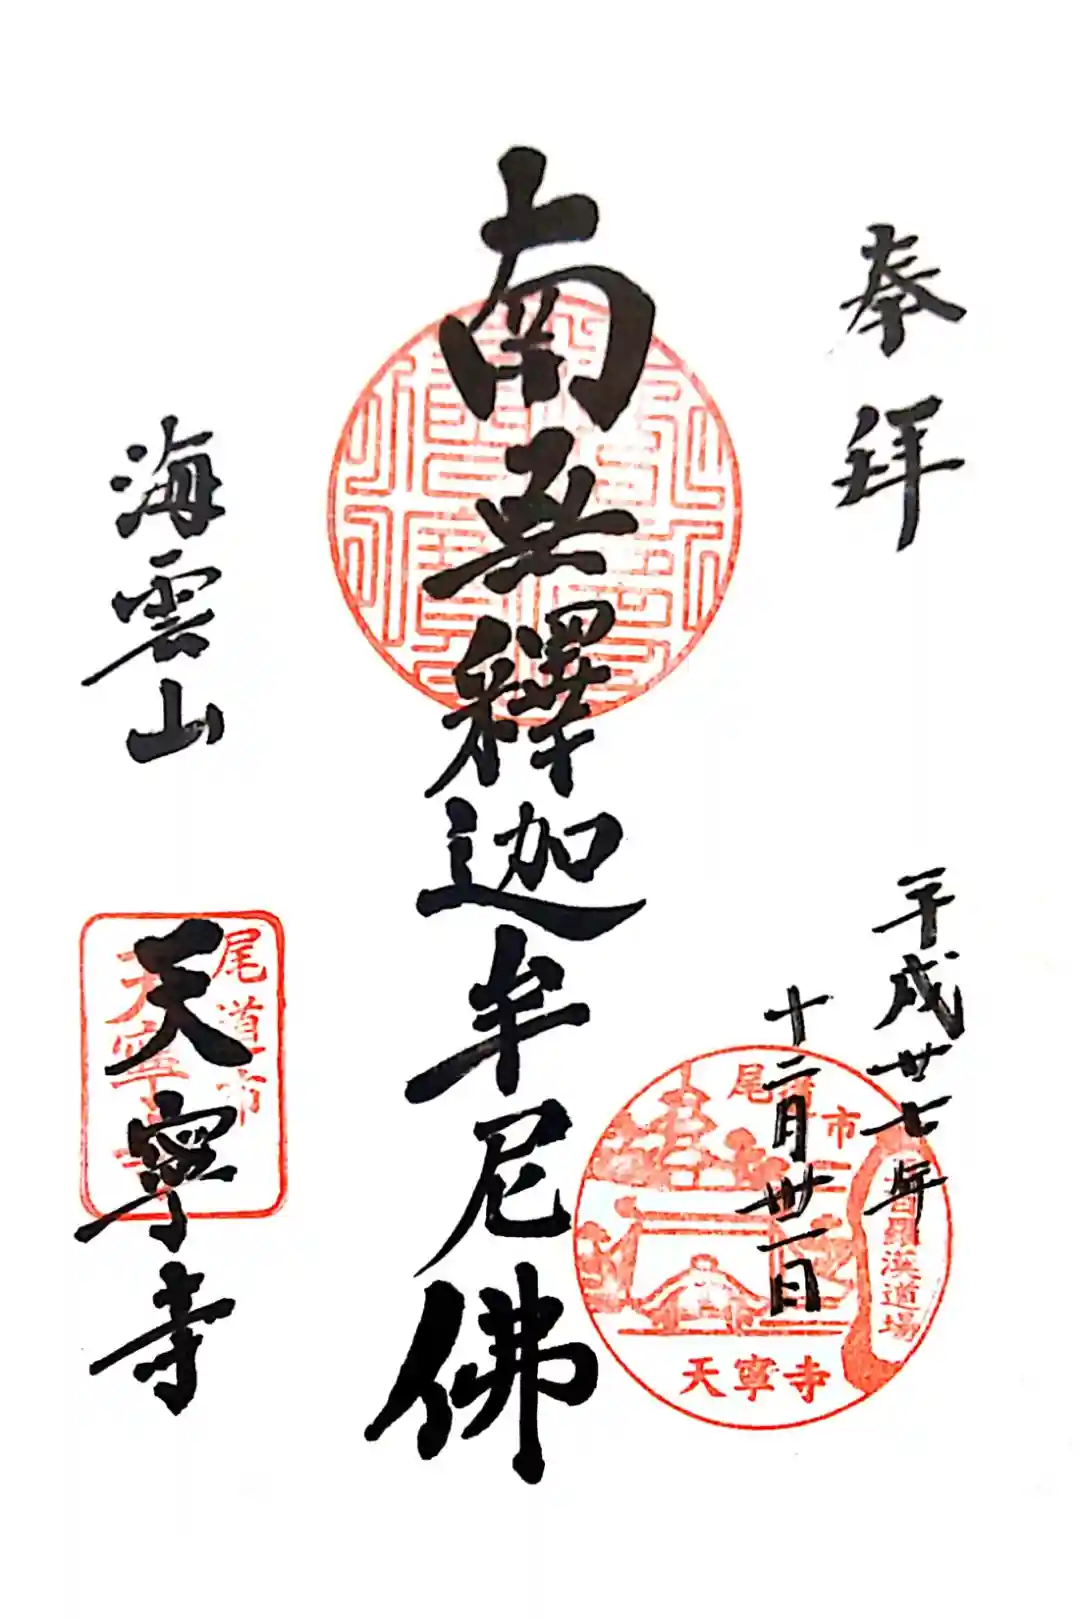 奉拝
平成廿七年
十二月丗一日
南無釋迦牟尼佛
海雲山
天寧寺
尾道市
羅漢道場
天寧寺
尾道市
天寧寺